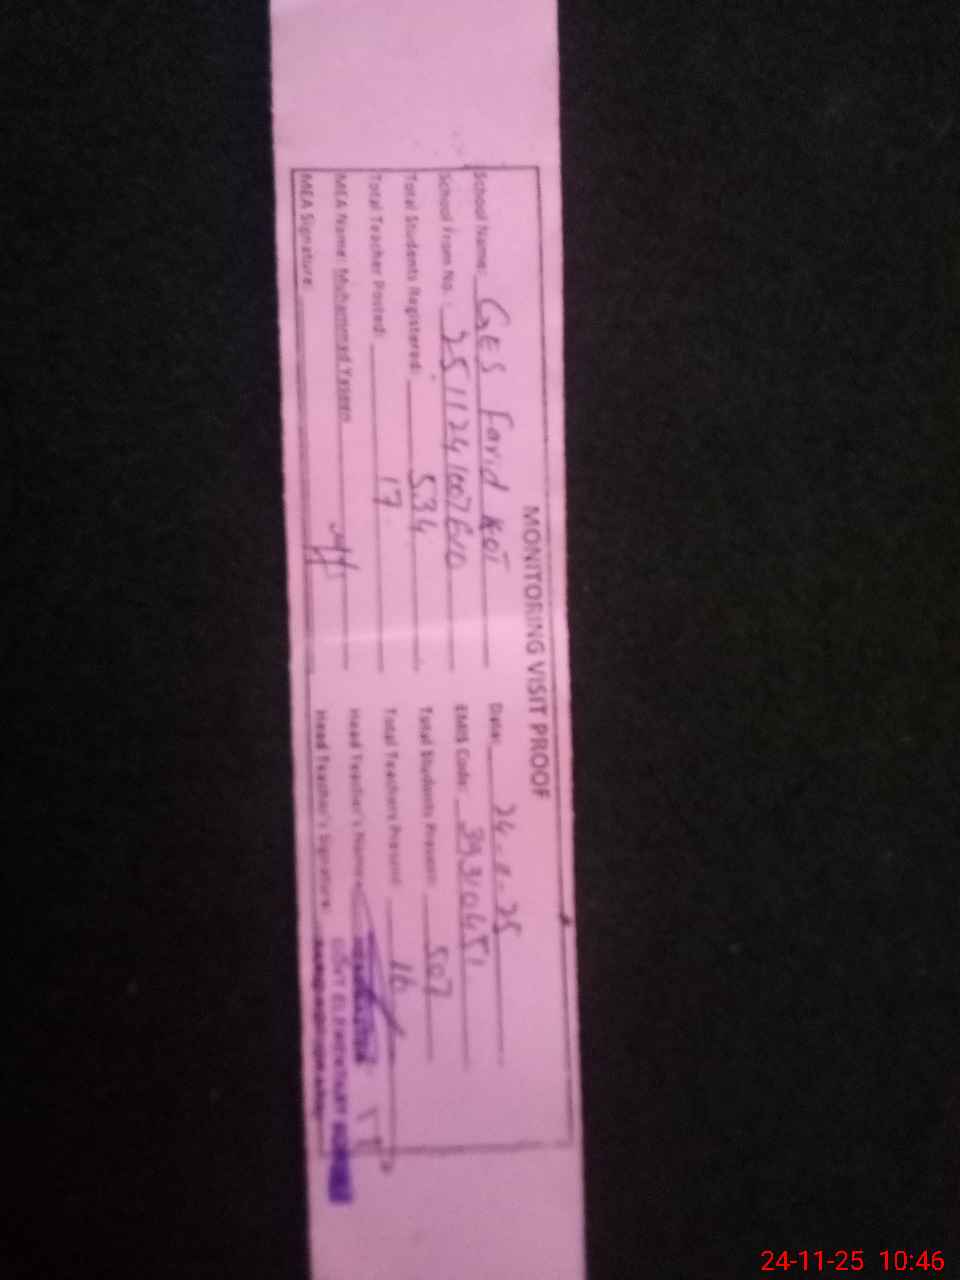 MONITORING VISIT PROOF
School Name: GES Farid KOT Date: 24-11-25
School From No. : 2511241007EVO EMIS Code: 39310451
Total Students Registered: 534 Total Students Present: 507
Total Teacher Posted: 17 Total Teachers Present: 16
MEA Name: Muhammad Yaseen Head Teacher's Name:
MEA Signature Head Teacher's Signature:
GOVT ELEMENTARY
24-11-25 10:46